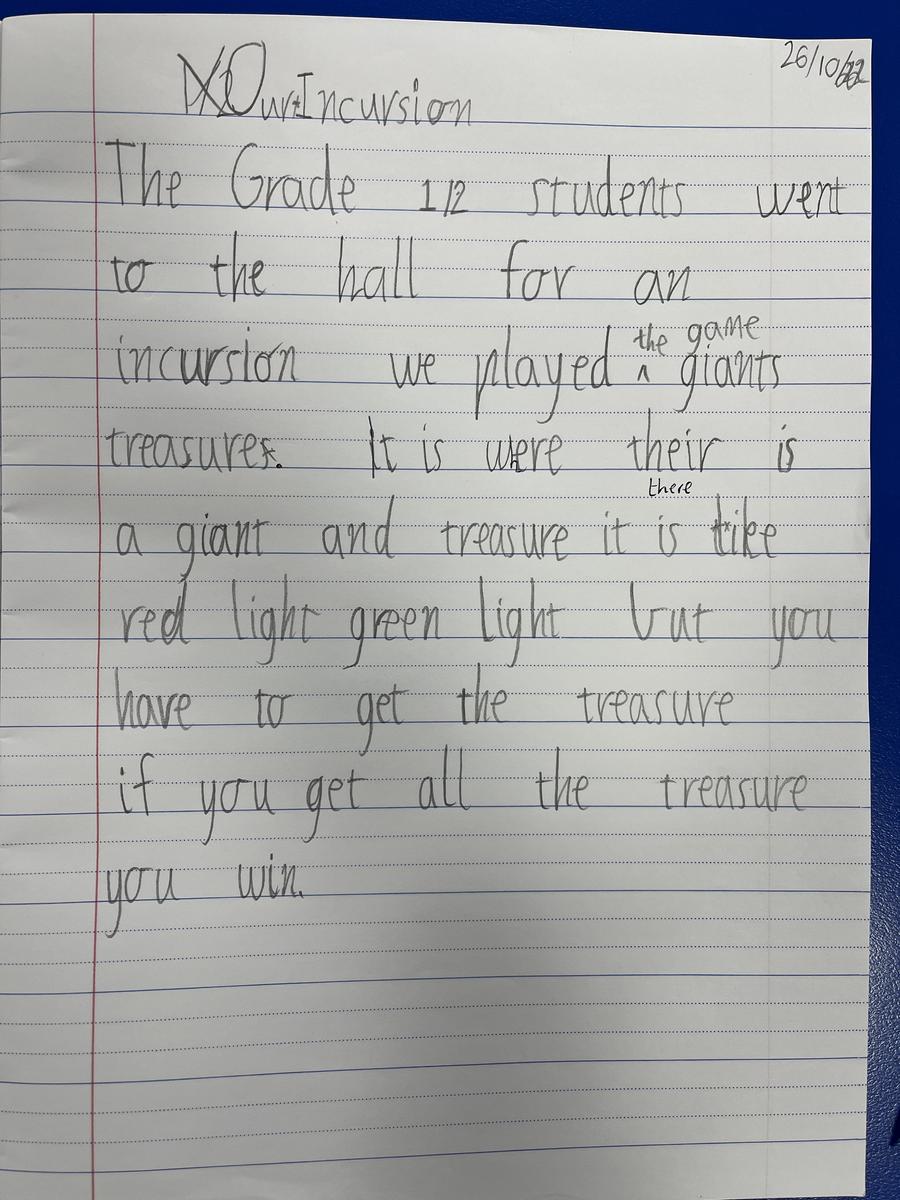 26/10/22
Our Incursion
The Grade 1/2 students went
to the hall for an
the game
incursion we played ^ giants
treasures. It is were their is
there
a giant and treasure it is like
red light green light but you
have to get the treasure
if you get all the treasure
you win.